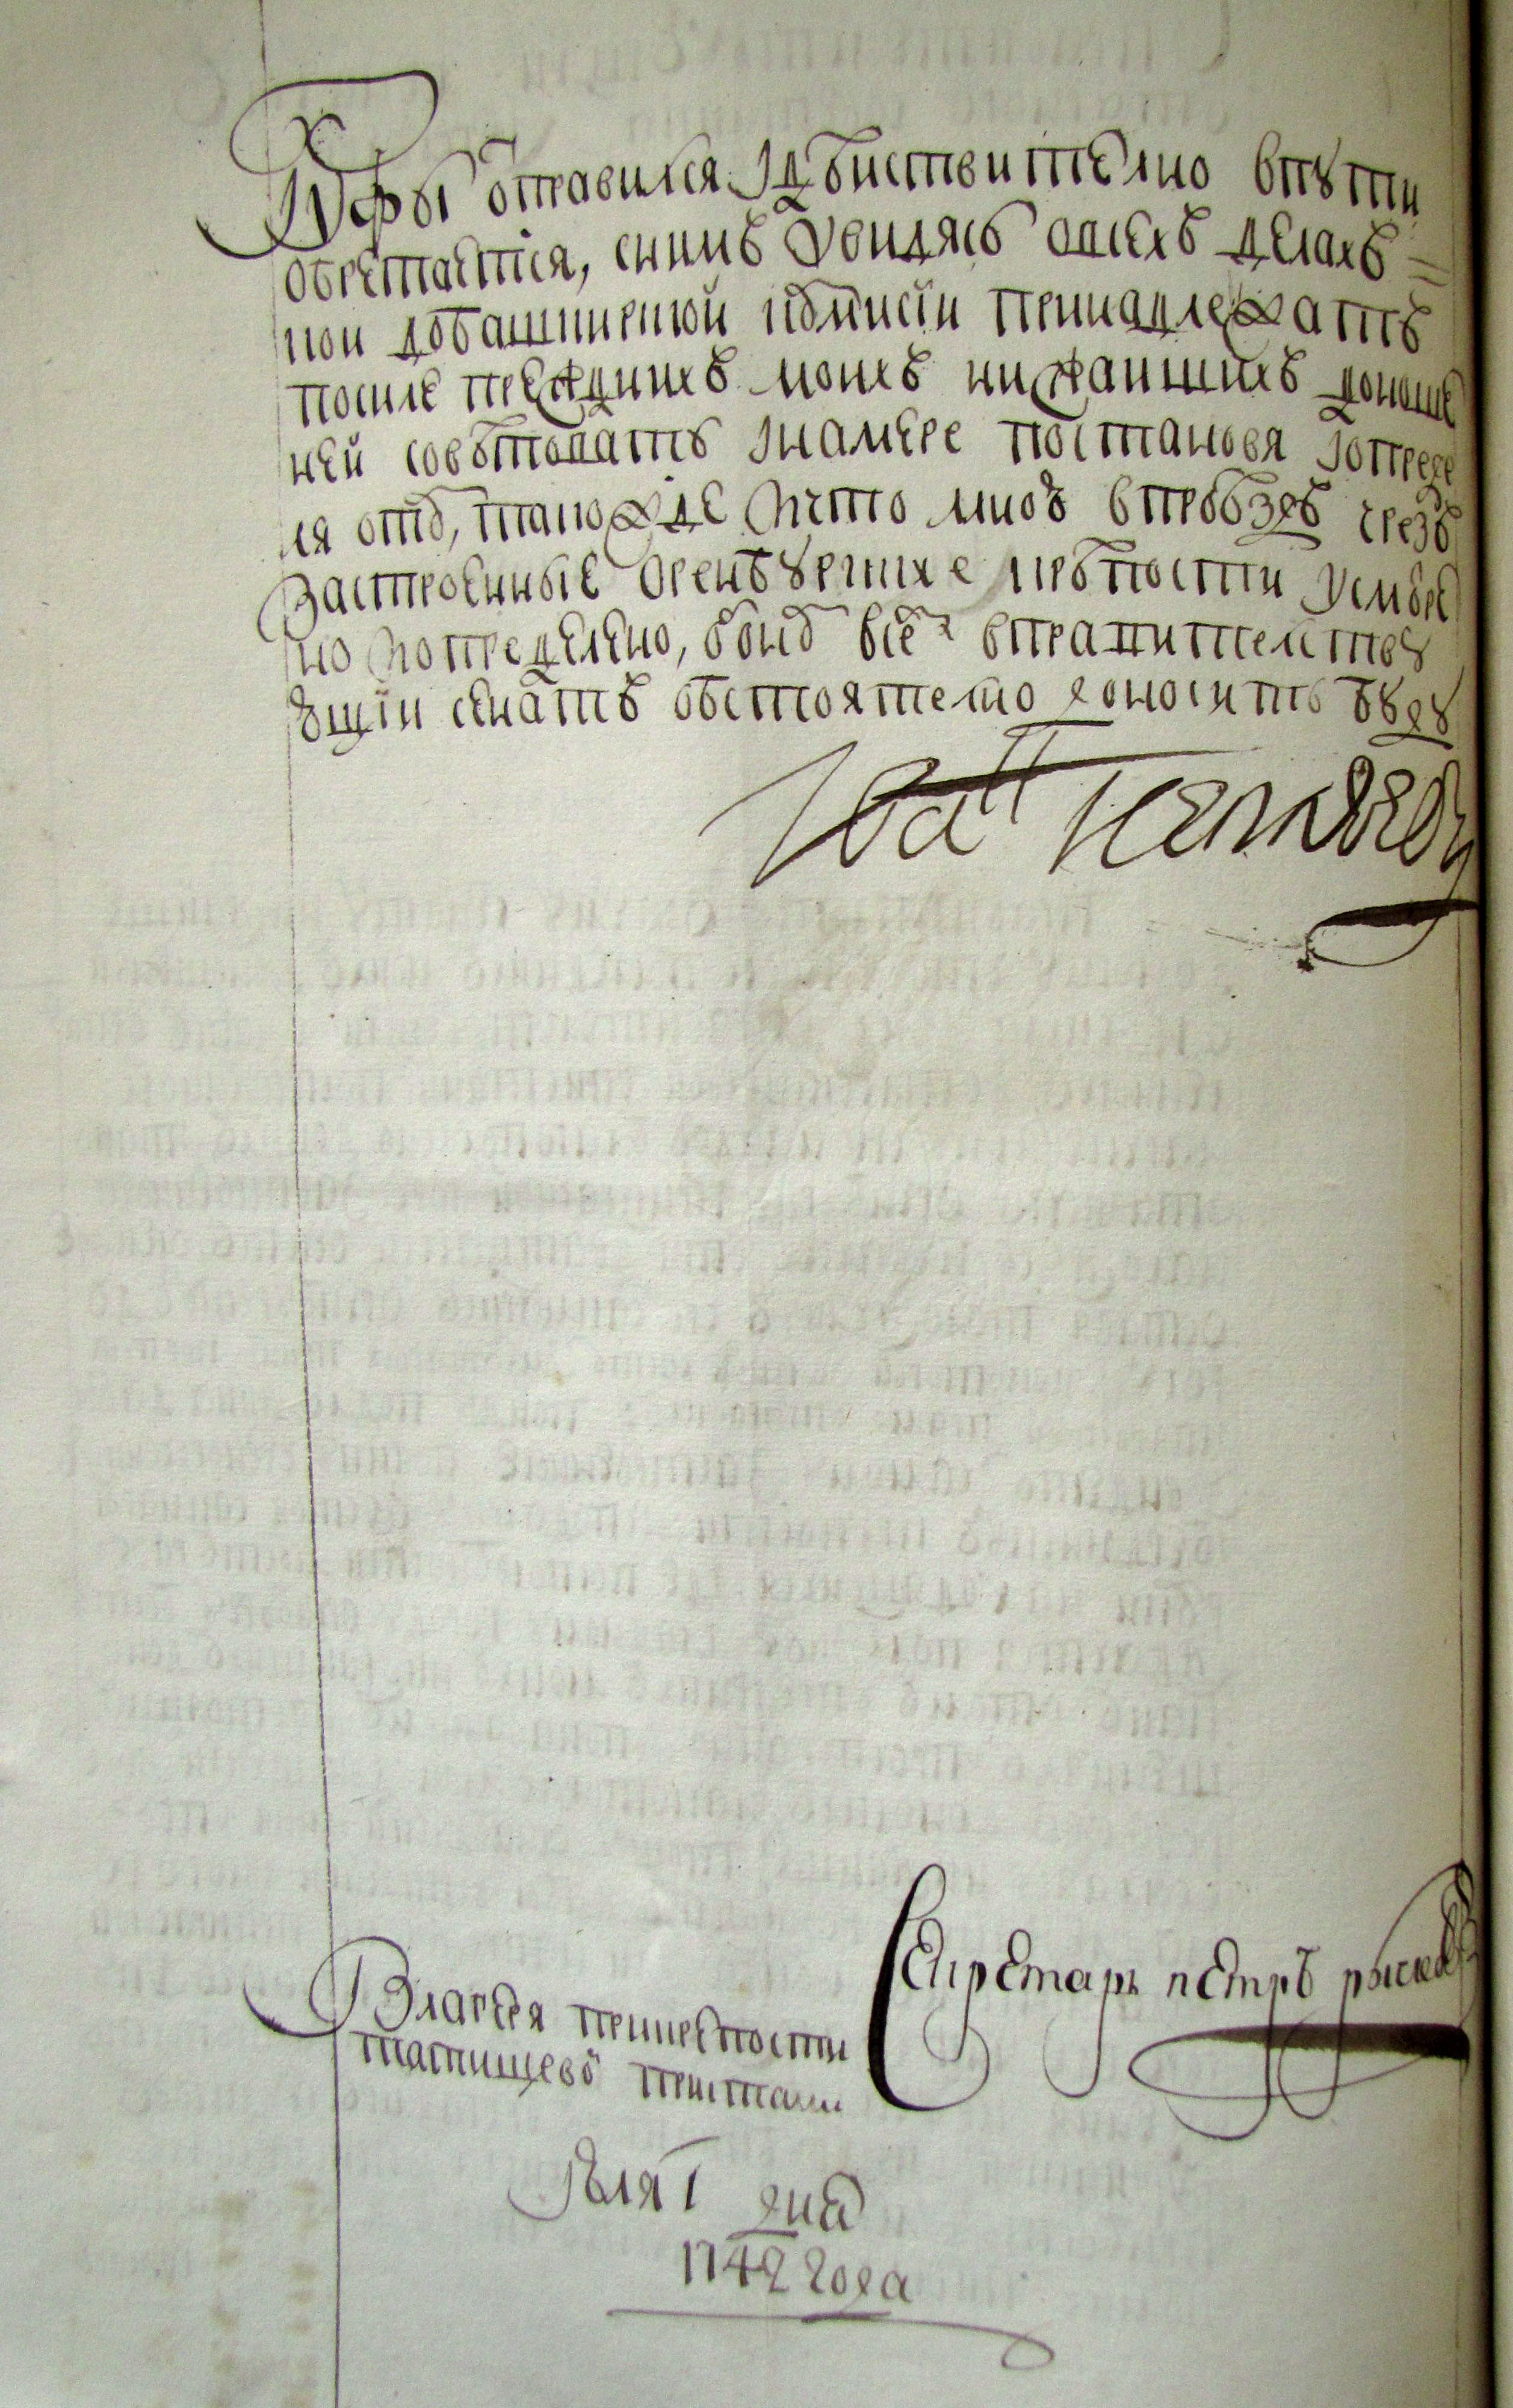 Уфы отправился, и действително в пути
обретается, с ним увидясь о всех делах
кои до башкирской комисии принадлежат
после прежних моих нижайших доноше
ней советовать и намере постановя и опреде
ля о том, також де и что мною в проезд чрез
застроенные оренбургские крепости усмотре
но и определено, о оном всем в правителствую
ющий сенат обстоятелно доносить буду
Иван Неплюев
Секретарь петръ рычков
В лагере при крепости
татищевой пристани
июля 1 дня
1742 года